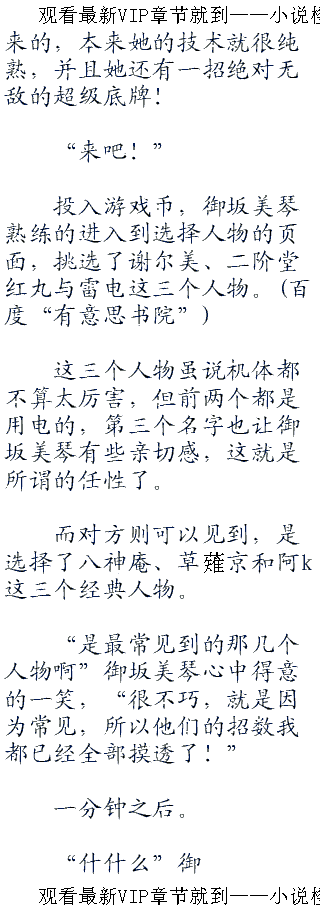 观看最新VIP章节就到——小说检
来的，本来她的技术就很纯
熟，并且她还有一招绝对无
敌的超级底牌！
“来吧！”
投入游戏币，御坂美琴
熟练的进入到选择人物的页
面，挑选了谢尔美、二阶堂
红九与雷电这三个人物。(百
度“有意思书院”)
这三个人物虽说机体都
不算太厉害，但前两个都是
用电的，第三个名字也让御
坂美琴有些亲切感，这就是
所谓的任性了。
而对方则可以见到，是
选择了八神庵、草薙京和阿k
这三个经典人物。
“是最常见到的那几个
人物啊”御坂美琴心中得意
的一笑，“很不巧，就是因
为常见，所以他们的招数我
都已经全部摸透了！”
一分钟之后。
“什什么”御
观看最新VIP章节就到——小说检